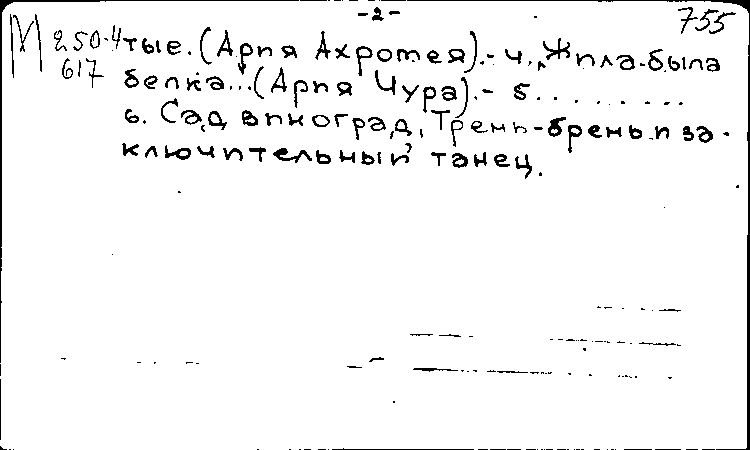 -2-
755
М 250-4
617
тые. (Ария Ахротея).- 4. „Жила-была
белка..." (Ария Чура).- 5. . . . . . . . .
6. Сад, виноград, Трень-брень и за-
ключительный танец.